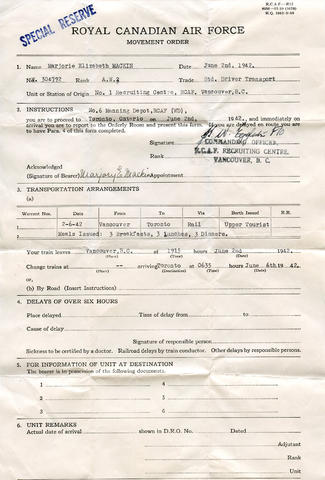 SPECIAL RESERVE
ROYAL CANADIAN AIR FORCE
MOVEMENT ORDER
1. Name Marjorie Elizabeth MACKIN Date June 2nd, 1942.
No. 304792 Rank A.W.2 Trade Std. Driver Transport
Unit or Station of Origin No. 1 Recruiting Centre, RCAF, Vancouver, B.C.
2. INSTRUCTIONS No.6 Manning Depot, RCAF (WD),
you are to proceed to Toronto, Ontario on June 2nd, 1942, and immediately on
arrival you are to report to the Orderly Room and present this form. If you are delayed en route you are
to have Para. 4 of this form completed.
Signature
Rank
COMMANDING OFFICER
R.C.A.F. RECRUITING CENTRE
VANCOUVER, B. C.
Acknowledged
(Signature of Bearer) Marjory E. Mackin Appointment
3. TRANSPORTATION ARRANGEMENTS
(a)
Warrant Nos. Date From To Via Berth Issued
2-6-42 Vancouver Toronto Rail Upper Tourist
Meals Issued: 3 Breakfasts, 3 Lunches, 3 Dinners.
Your train leaves Vancouver, B.C. of 1915 hours June 2nd 1942.
(Place) (Time) (Date)
Change trains at -- arriving Toronto at 0635 hours June 6th 1942.
(Place) (Place) (Time) (Date)
or,
(b) By Road (Insert Instructions)
4. DELAYS OF OVER SIX HOURS
Place delayed Time of delay from to
Cause of delay
Signature of responsible person
Sickness to be certified by a doctor. Railroad delays by train conductor. Other delays by responsible persons.
5. FOR INFORMATION OF UNIT AT DESTINATION
The bearer is in possession of the following documents.
1 4
2 5
3 6
6. UNIT REMARKS
Actual date of arrival shown in D.R.O. No. Dated
Adjutant
Rank
Unit